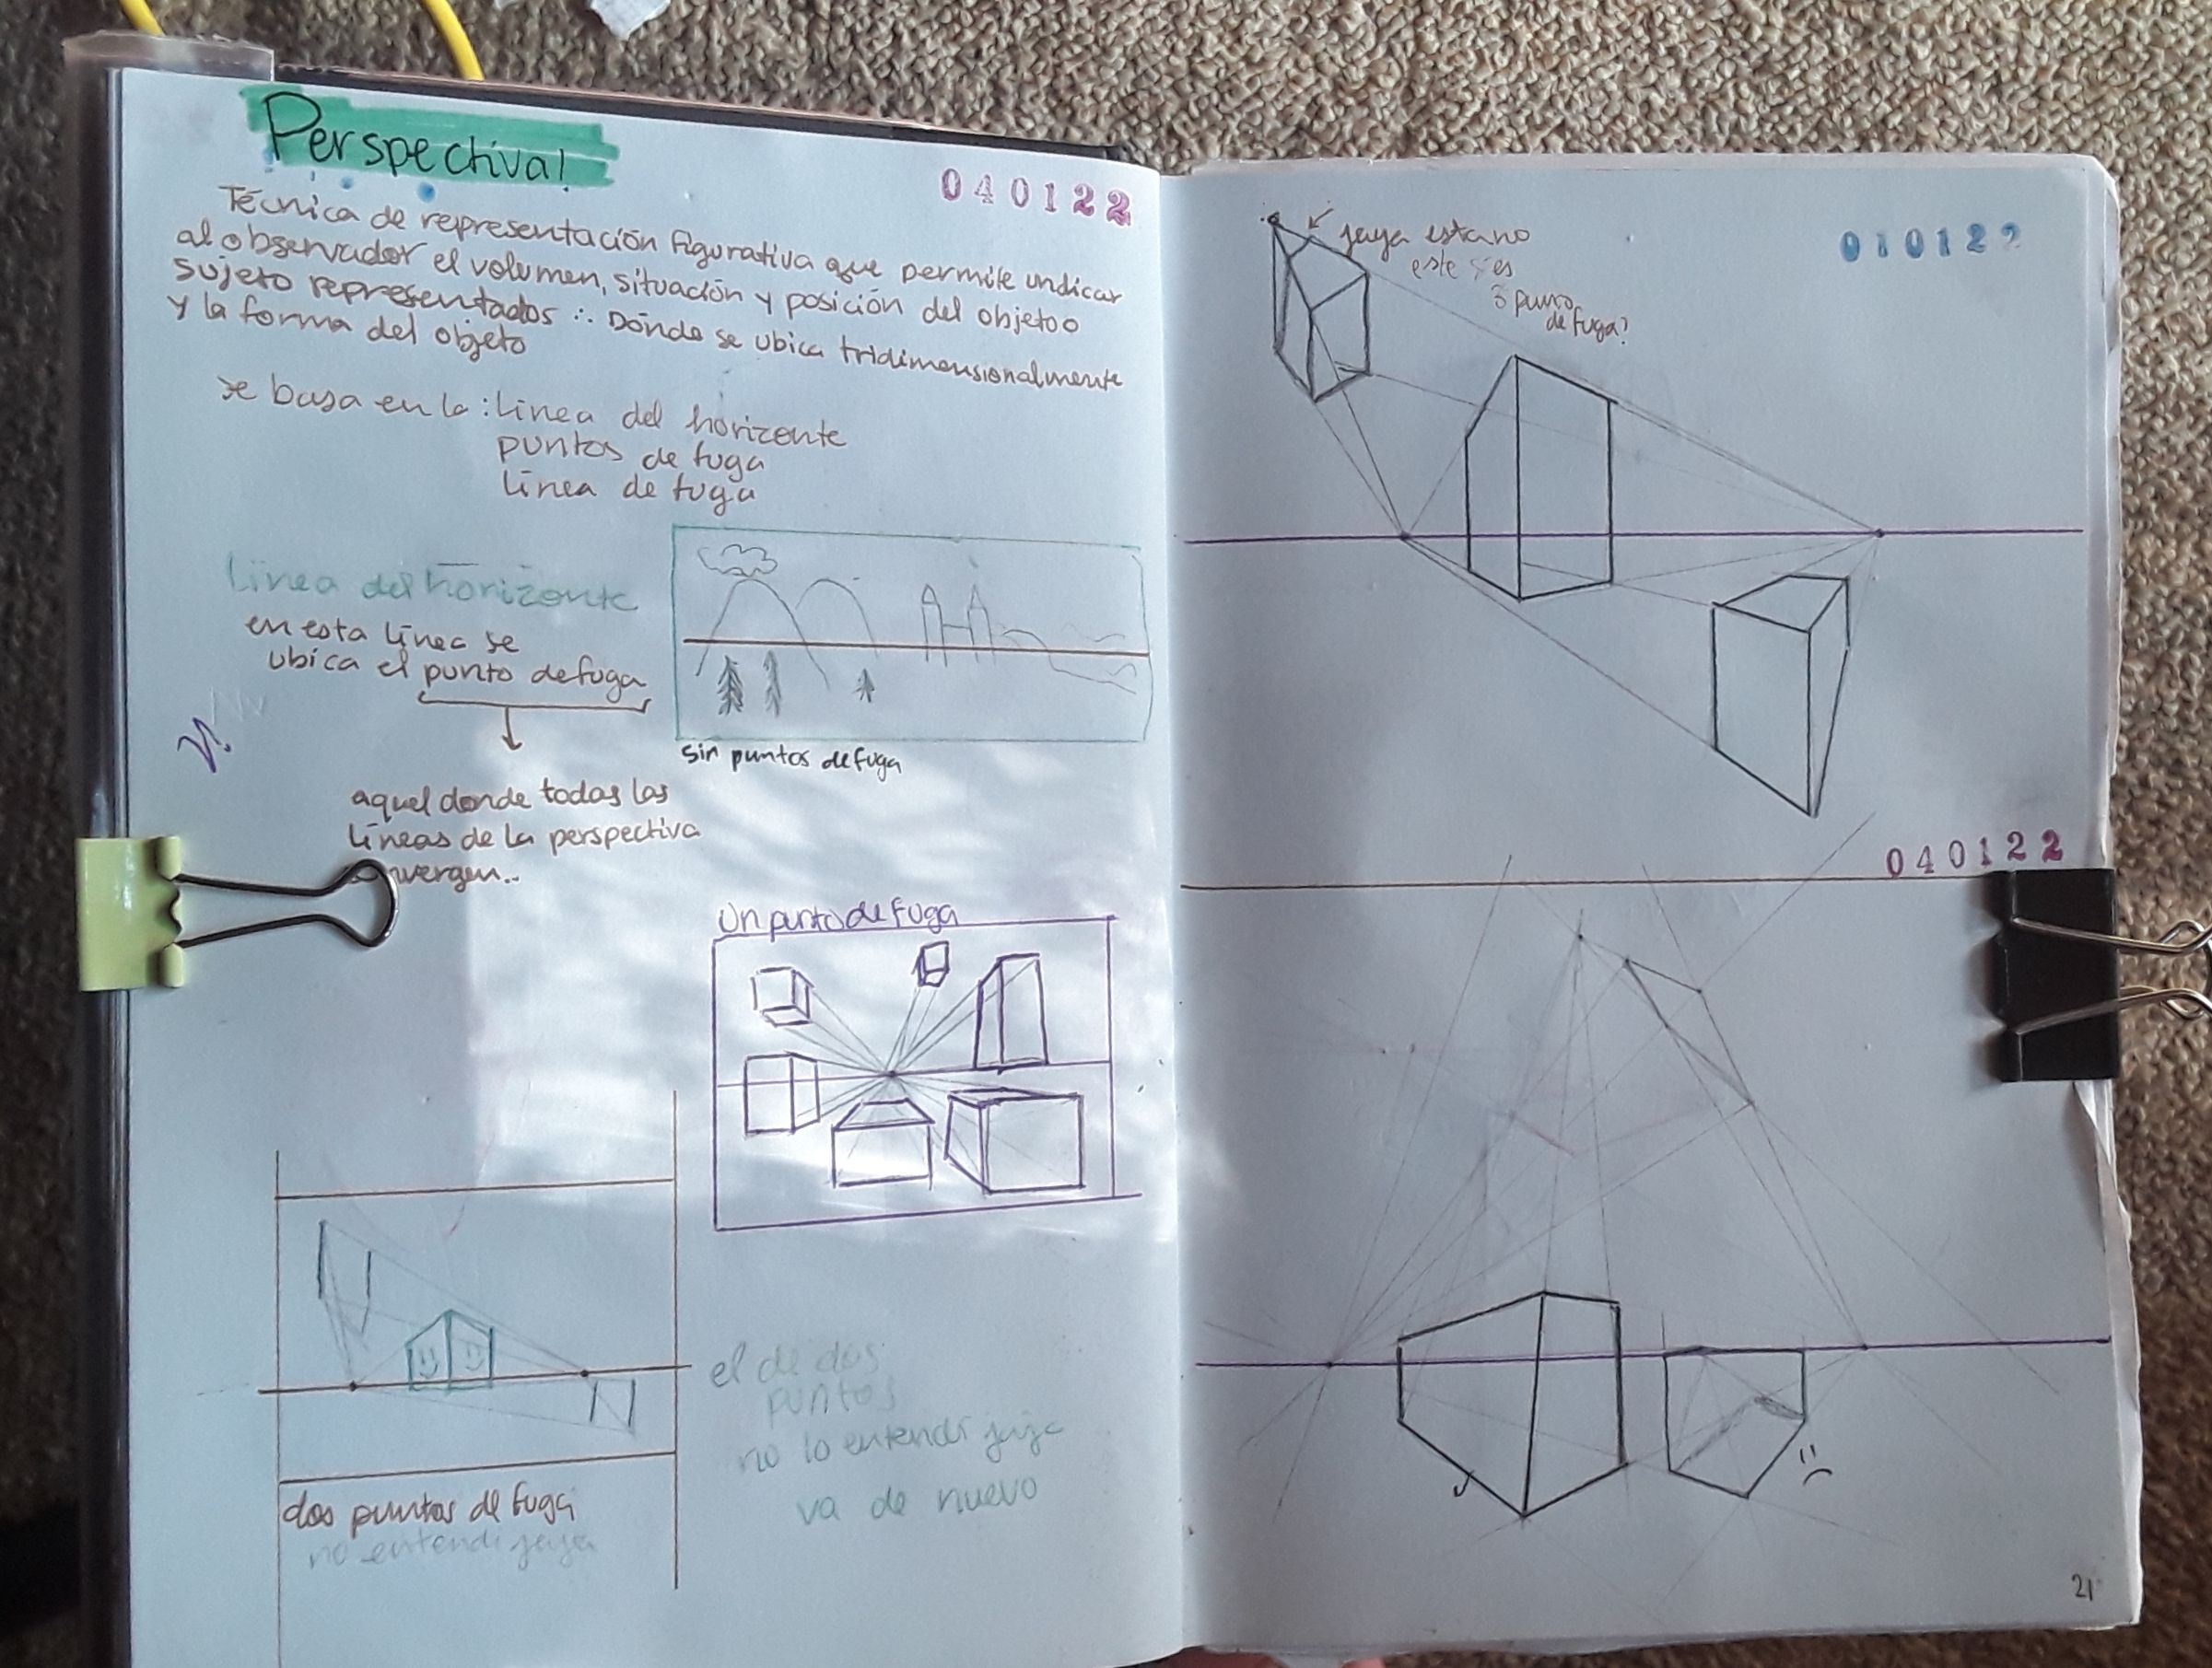 Perspectiva!
040122
Técnica de representación figurativa que permite indicar
al observador el volumen, situación y posición del objeto o
sujeto representados ∴ Dónde se ubica tridimensionalmente
y la forma del objeto
se basa en la: línea del horizonte
puntos de fuga
línea de fuga
Línea del horizonte
en esta línea se
ubica el punto de fuga
sin puntos de fuga
aquel donde todas las
líneas de la perspectiva
Un punto de fuga
dos puntos de fuga
no entendí jaja
el de dos
puntos
no lo entendí jaja
va de nuevo
jaja esta no
este es
3 punto
de fuga?
010122
040122
21